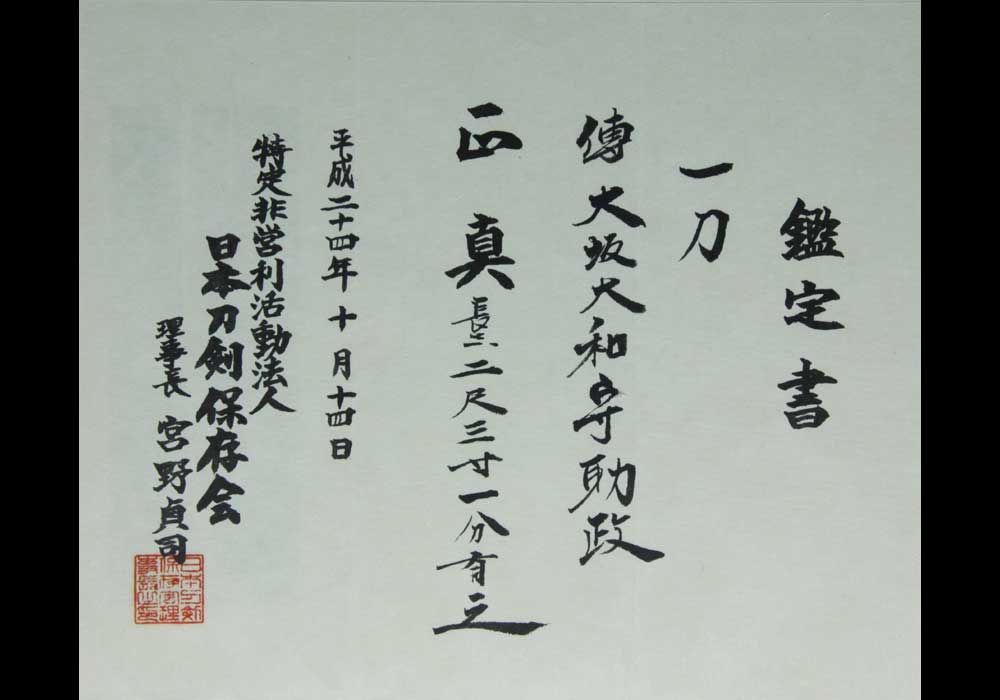 鑑定書
一刀
傳大坂大和守助政
正真
長サ二尺三寸一分有之
平成二十四年十月十四日
特定非営利活動法人
日本刀剣保存会
理事長 宮野貞司